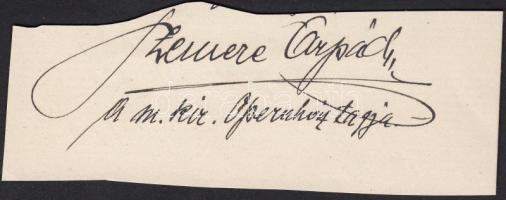 Szemere Árpád
a m. kir. Operaház tagja